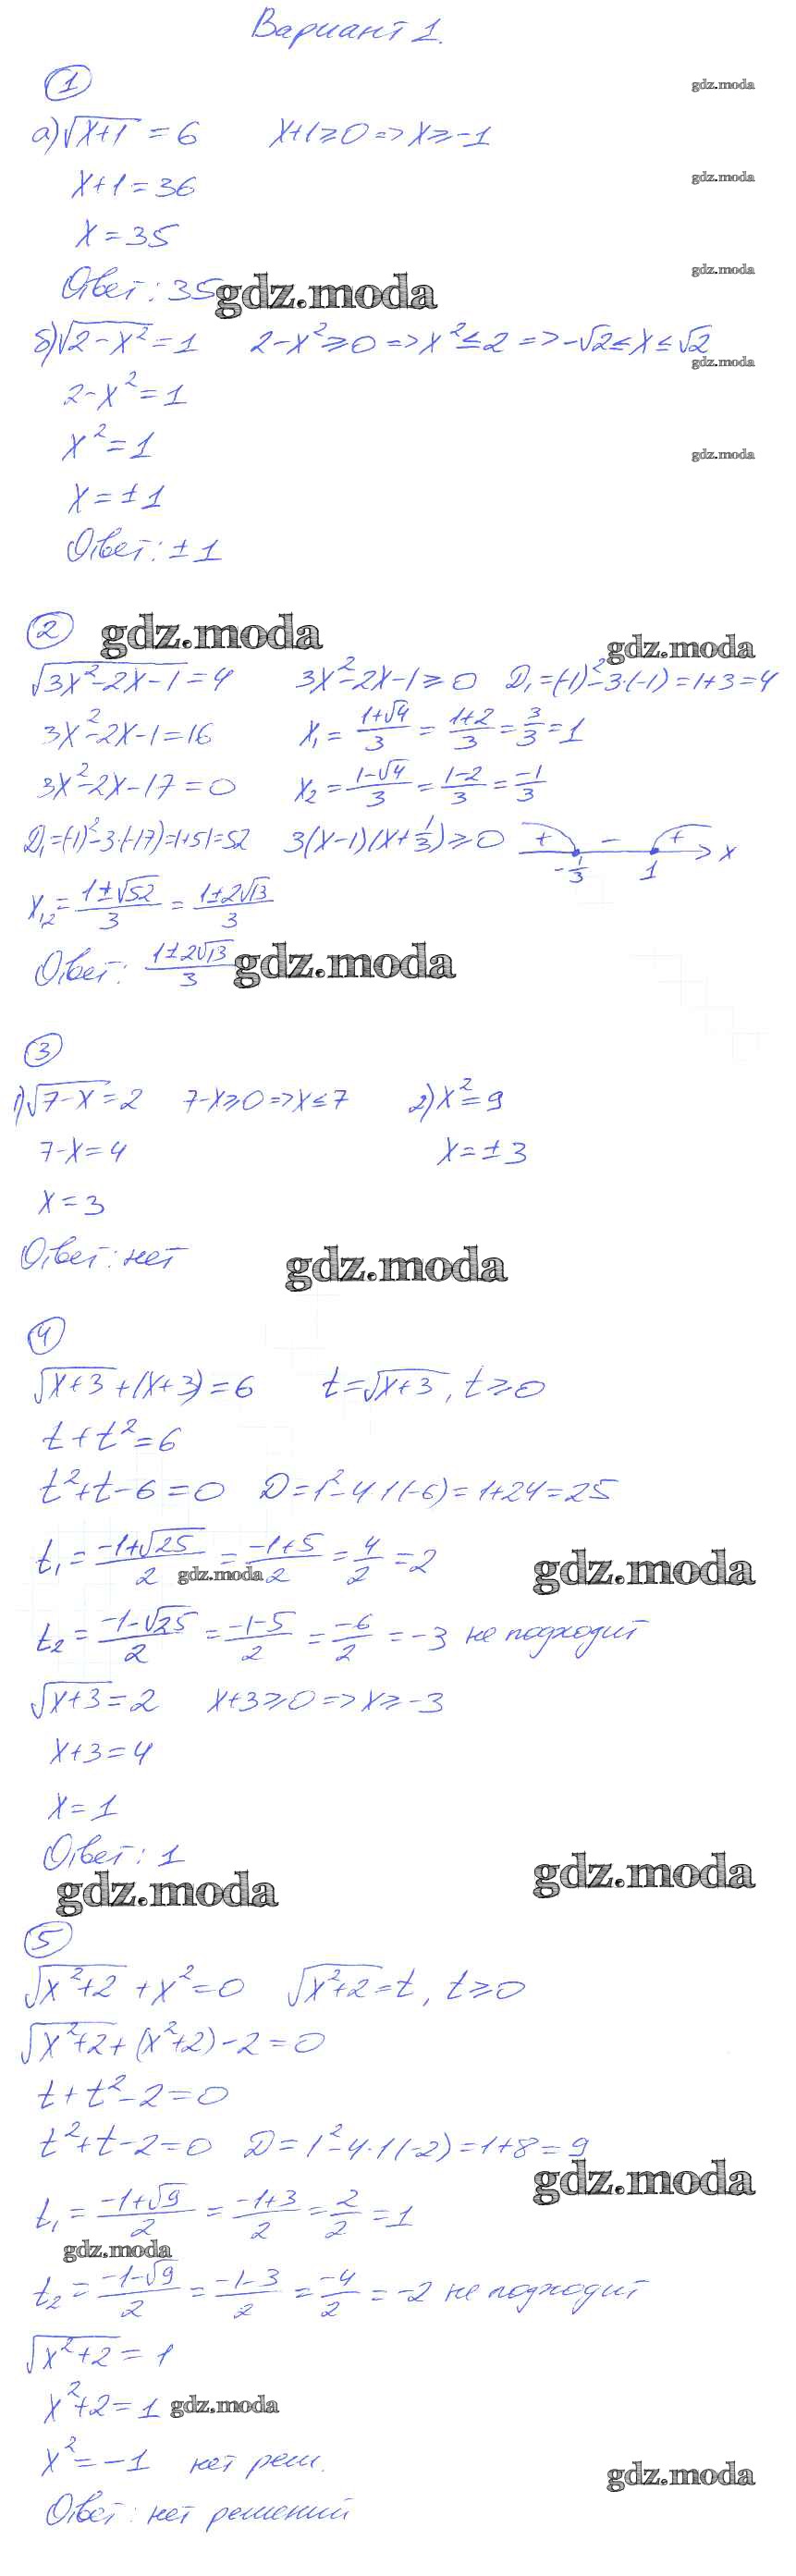 Вариант 1.
1
gdz.moda
а) √(x+1) = 6   x+1≥0 => x≥-1
x+1=36
gdz.moda
x=35
gdz.moda
Ответ: 35
gdz.moda
б) √(2-x²) = 1   2-x²≥0 => x²≤2 => -√2≤x≤√2
gdz.moda
2-x²=1
x²=1
gdz.moda
x=±1
Ответ: ±1
2
gdz.moda
gdz.moda
√(3x²-2x-1) = 4   3x²-2x-1≥0   D₁=(-1)²-3·(-1)=1+3=4
3x²-2x-1=16   x₁ = (1+√4)/3 = (1+2)/3 = 3/3 = 1
3x²-2x-17=0   x₂ = (1-√4)/3 = (1-2)/3 = -1/3
D₁=(-1)²-3·(-17)=1+51=52   3(x-1)(x+1/3)≥0   + - + x
-1/3   1
x₁,₂ = (1±√52)/3 = (1±2√13)/3
Ответ: (1±2√13)/3
gdz.moda
3
1) √(7-x) = 2   7-x≥0 => x≤7   2) x²=9
7-x=4   x=±3
x=3
Ответ: нет
gdz.moda
4
√(x+3) + (x+3) = 6   t=√(x+3), t≥0
t+t²=6
t²+t-6=0   D=1²-4·1(-6)=1+24=25
t₁ = (-1+√25)/2 = (-1+5)/2 = 4/2 = 2
gdz.moda
gdz.moda
t₂ = (-1-√25)/2 = (-1-5)/2 = -6/2 = -3 не подходит
√(x+3) = 2   x+3≥0 => x≥-3
x+3=4
x=1
Ответ: 1
gdz.moda
gdz.moda
5
√(x²+2) + x² = 0   √(x²+2) = t, t≥0
√(x²+2) + (x²+2) - 2 = 0
t+t²-2=0
t²+t-2=0   D=1²-4·1(-2)=1+8=9
gdz.moda
t₁ = (-1+√9)/2 = (-1+3)/2 = 2/2 = 1
gdz.moda
t₂ = (-1-√9)/2 = (-1-3)/2 = -4/2 = -2 не подходит
√(x²+2) = 1
x²+2=1
gdz.moda
x²=-1 нет реш.
gdz.moda
Ответ: нет решений